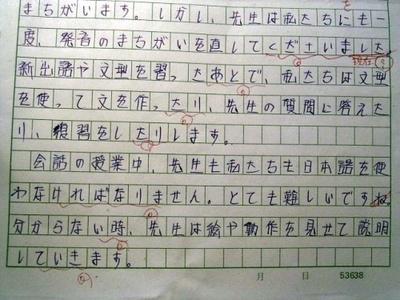 まちがいます。しかし、先生は私たちにも一
度、発音のまちがいを直してくださいました
現在
新出語や文型を習ったあとで、私たちは文型
を使って文を作ったり、先生の質問に答えた
り、復習をしたりします。
会話の授業中、先生も私たちも日本語を使
わなければなりません。とても難しいですね
分からない時、先生は絵や動作を見せて説明
していきます。
月 日 53638